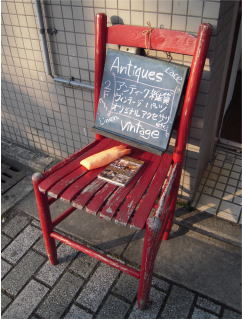 Antiques
Lace
2F
アンティーク雑貨
ヴィンテージパーツ
オリジナルアクセサリー
etc
Linen
Vintage